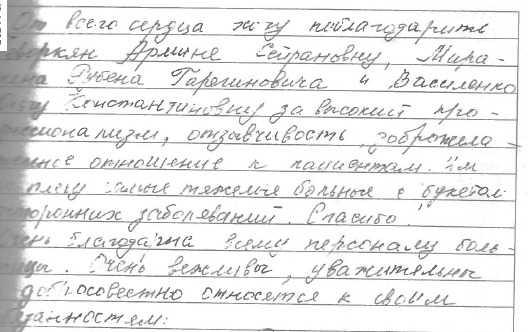 От всего сердца хочу поблагодарить
Геворкян Армине Сейрановну, Мира-
Рубена Гарегиновича и Василенко
Константиновну за высокий про-
ссионализм, отзывчивость, доброжела-
ельное отношение к пациентам. Им
самые тяжёлые больные с "букетом"
сторонних заболеваний. Спасибо!
Очень благодарна всему персоналу боль-
ницы. Очень вежливы, уважительны
добросовестно относятся к своим
занностям.